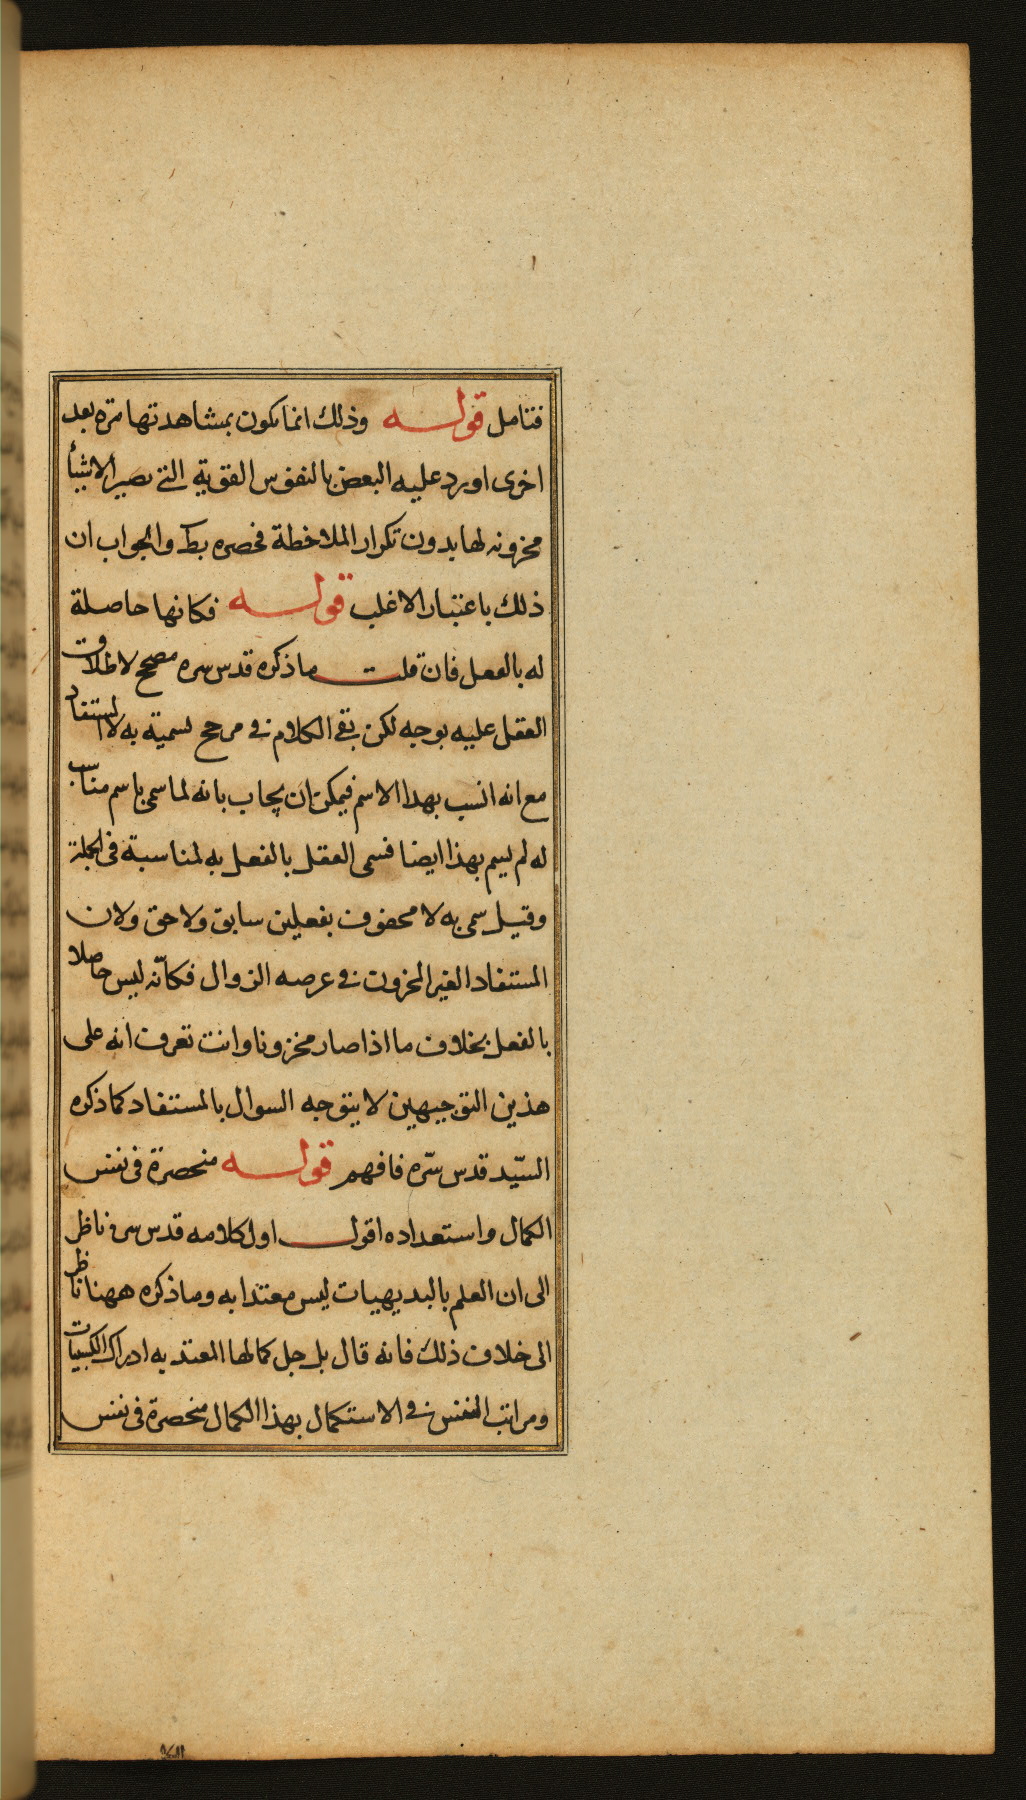 فتامل قوله وذلك انما يكون بمشاهدتها مرة بعد
اخرى اورد عليه البعض بالنفوس القوية التى يصير الاشيأ
مخزونه لها بدون تكرار الملاحظة فحصره بط والجواب ان
ذلك باعتبار الاغلب قوله فكانها حاصلة
له بالفعل فان قلت ما ذكره قدس سره مصحح لاطلاق
العقل عليه بوجه لكن بقى الكلام فى مرجح تسمية به لا المستفاد
مع انه انسب بهذا الاسم فيمكن ان يجاب بانه لما سمى باسم مناسب
له لم يسم بهذا ايضا فسمى العقل بالفعل به لمناسبة فى الجملة
وقيل سمى به لا محفوف بفعلين سابق ولاحق ولان
المستفاد الغير المخزون فى عرصه الزوال فكانّه ليس حاصلا
بالفعل بخلاف ما اذا صار مخزونا وانت تعرف انه على
هذين التوجيهين لا يتوجه السوال بالمستفاد كما ذكره
السيّد قدس سّره فافهم قوله منحصرة فى نفس
الكمال واستعداده اقول اول كلامه قدس سره ناظر
الى ان العلم بالبديهيات ليس معتدا به وما ذكره ههنا ناظر
الى خلاف ذلك فانه قال بل جل كمالها المعتد به ادراك الكسبيات
ومراتب النفس فى الاستكمال بهذا الكمال منحصرة فى نفس